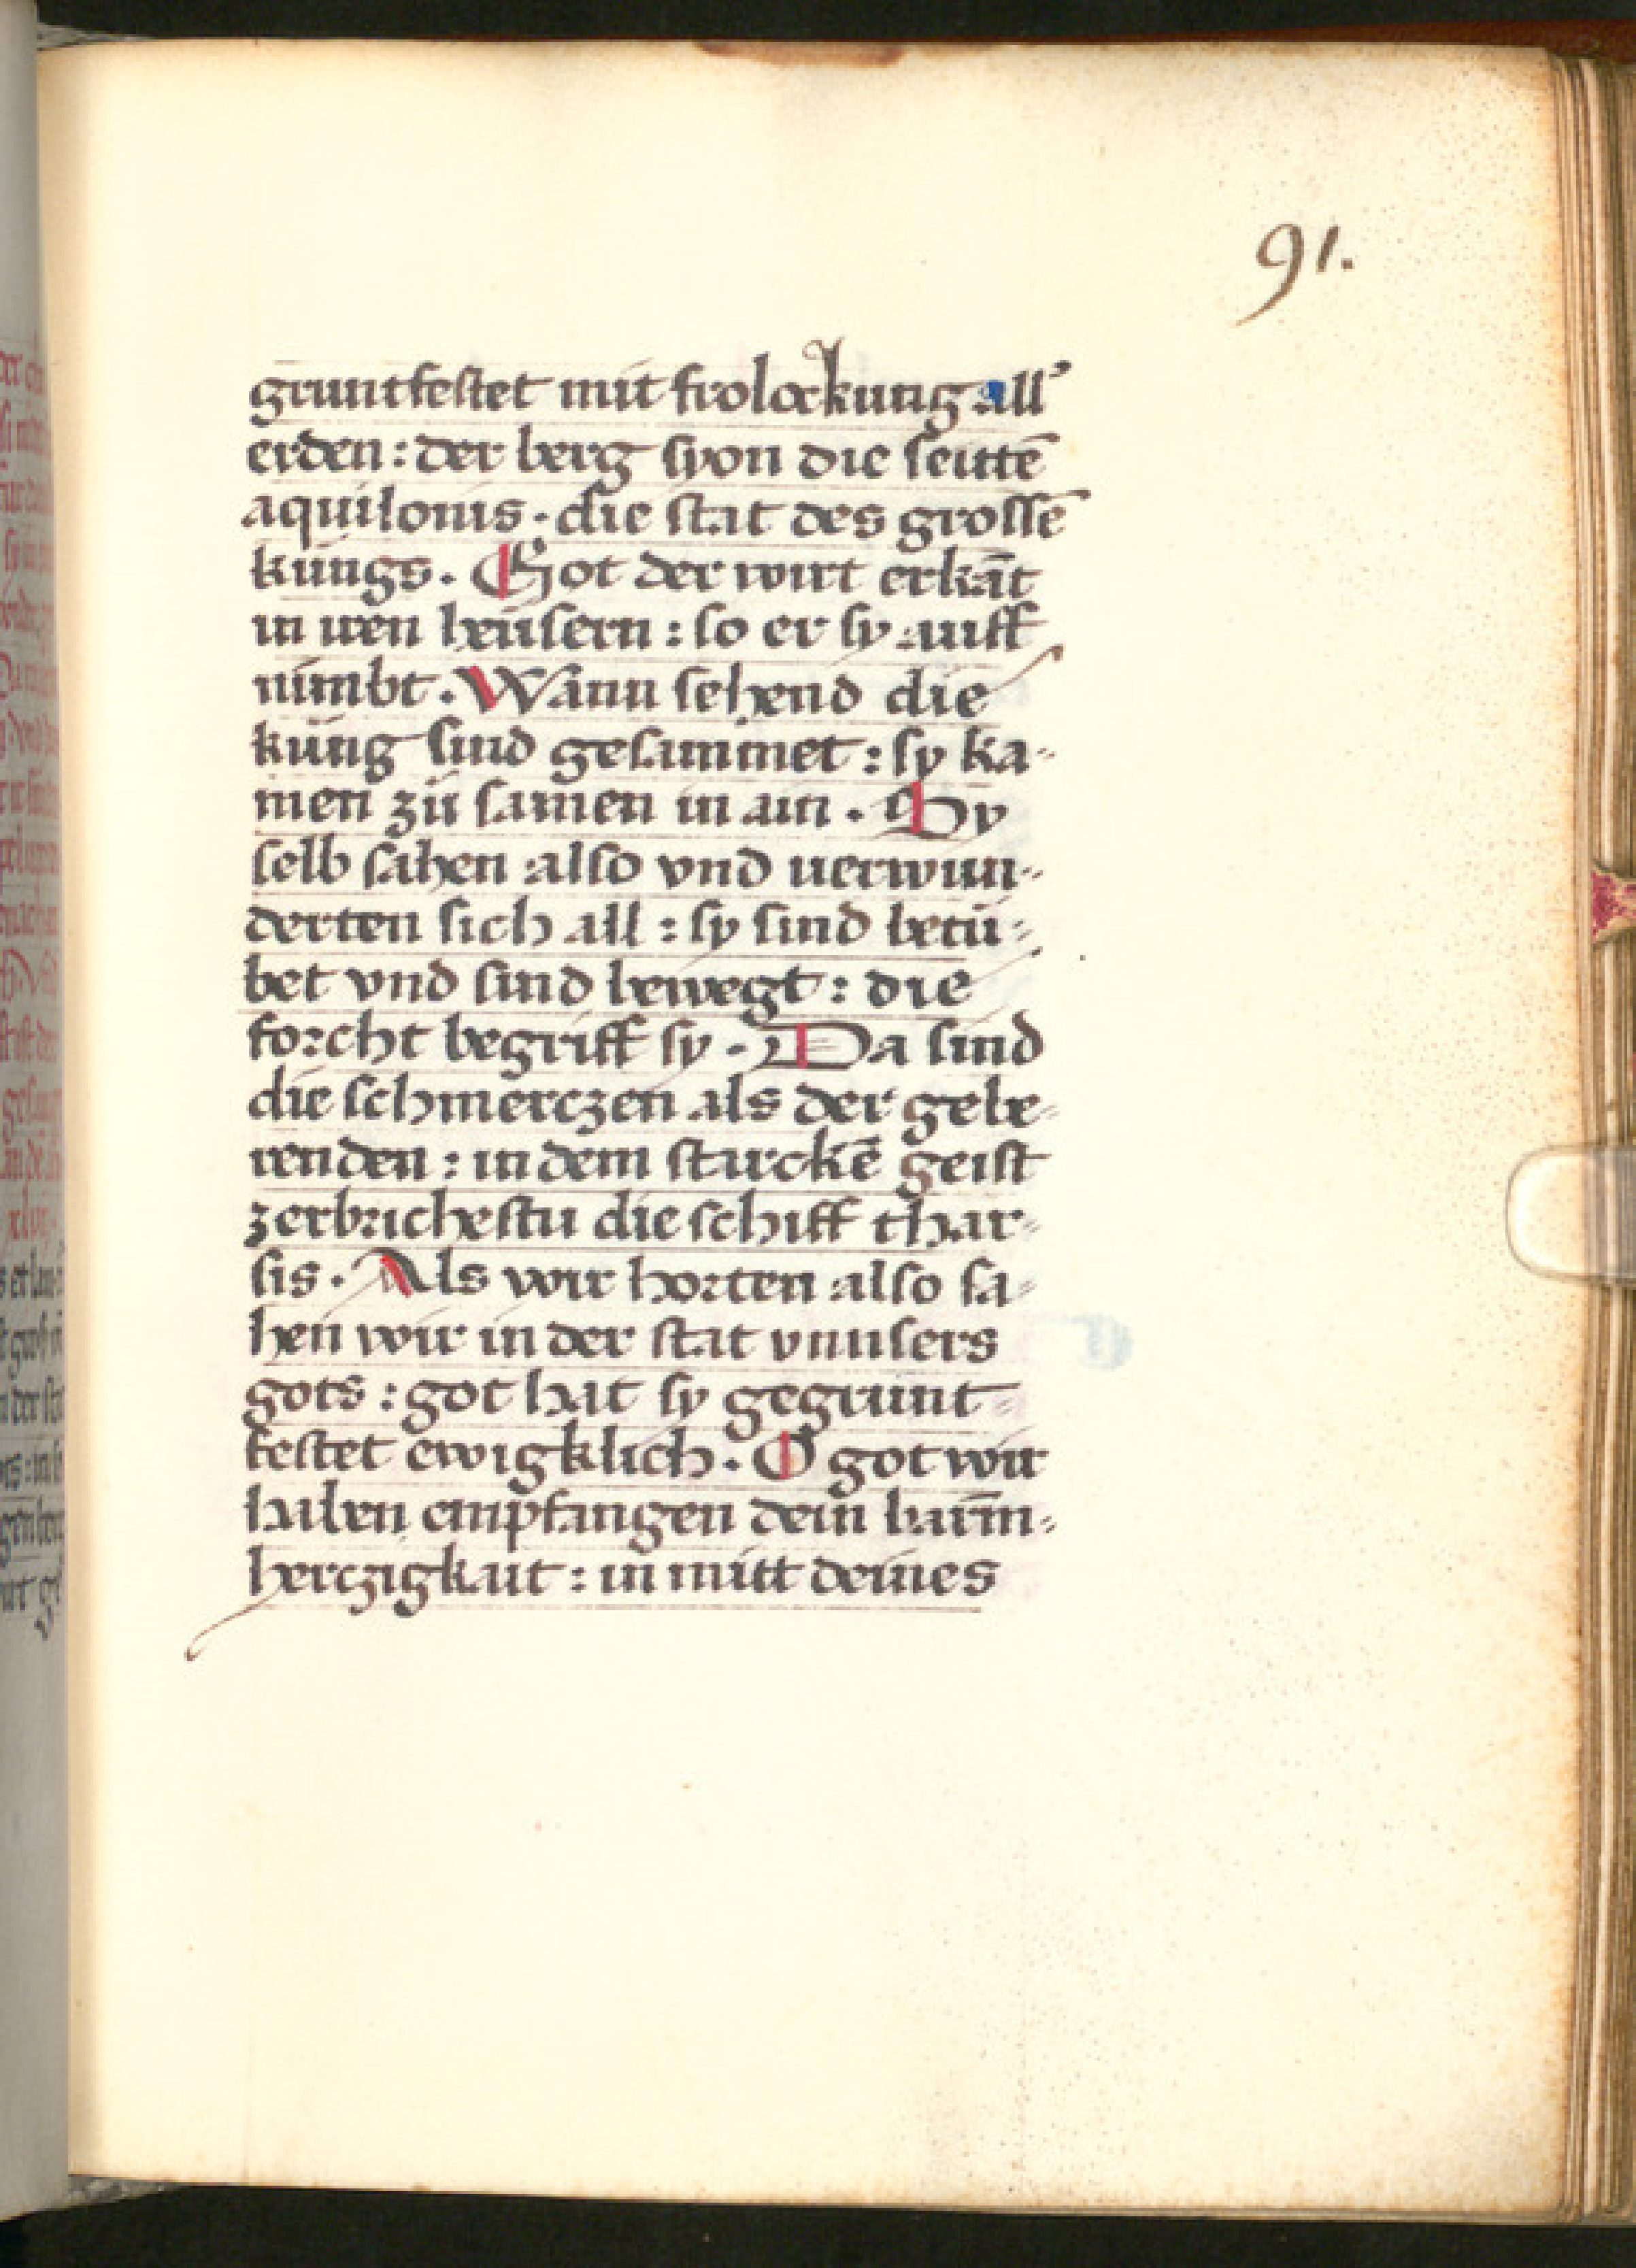 91.
gruntfestet mit frolockung all’
erden : der berg syon die seittē
aquilonis · die stat des grossē
küngs · Got der wirt erkāt
in iren heüsern : so er sy auff
nimbt · Wann sehend die
küng sind gesammet : sy ka-
men zü samen in ain · Sy
selb sahen also vnd uerwun-
derten sich all : sy sind betü-
bet vnd sind bewegt : die
forcht begriff sy · Da sind
die schmerczen als der gebe-
renden : in dem starckē geist
zerbrichestu die schiff thar-
sis · Als wir horten also sa-
hen wir in der stat vnnsers
gots : got hat sy gegrunt-
festet ewigklich · O got wir
haben empfangen dein barm̄-
herczigkait : in mitt deines